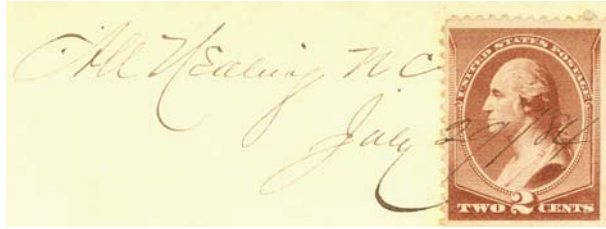 All Healing N C
July 27/86
UNITED STATES POSTAGE
TWO 2 CENTS